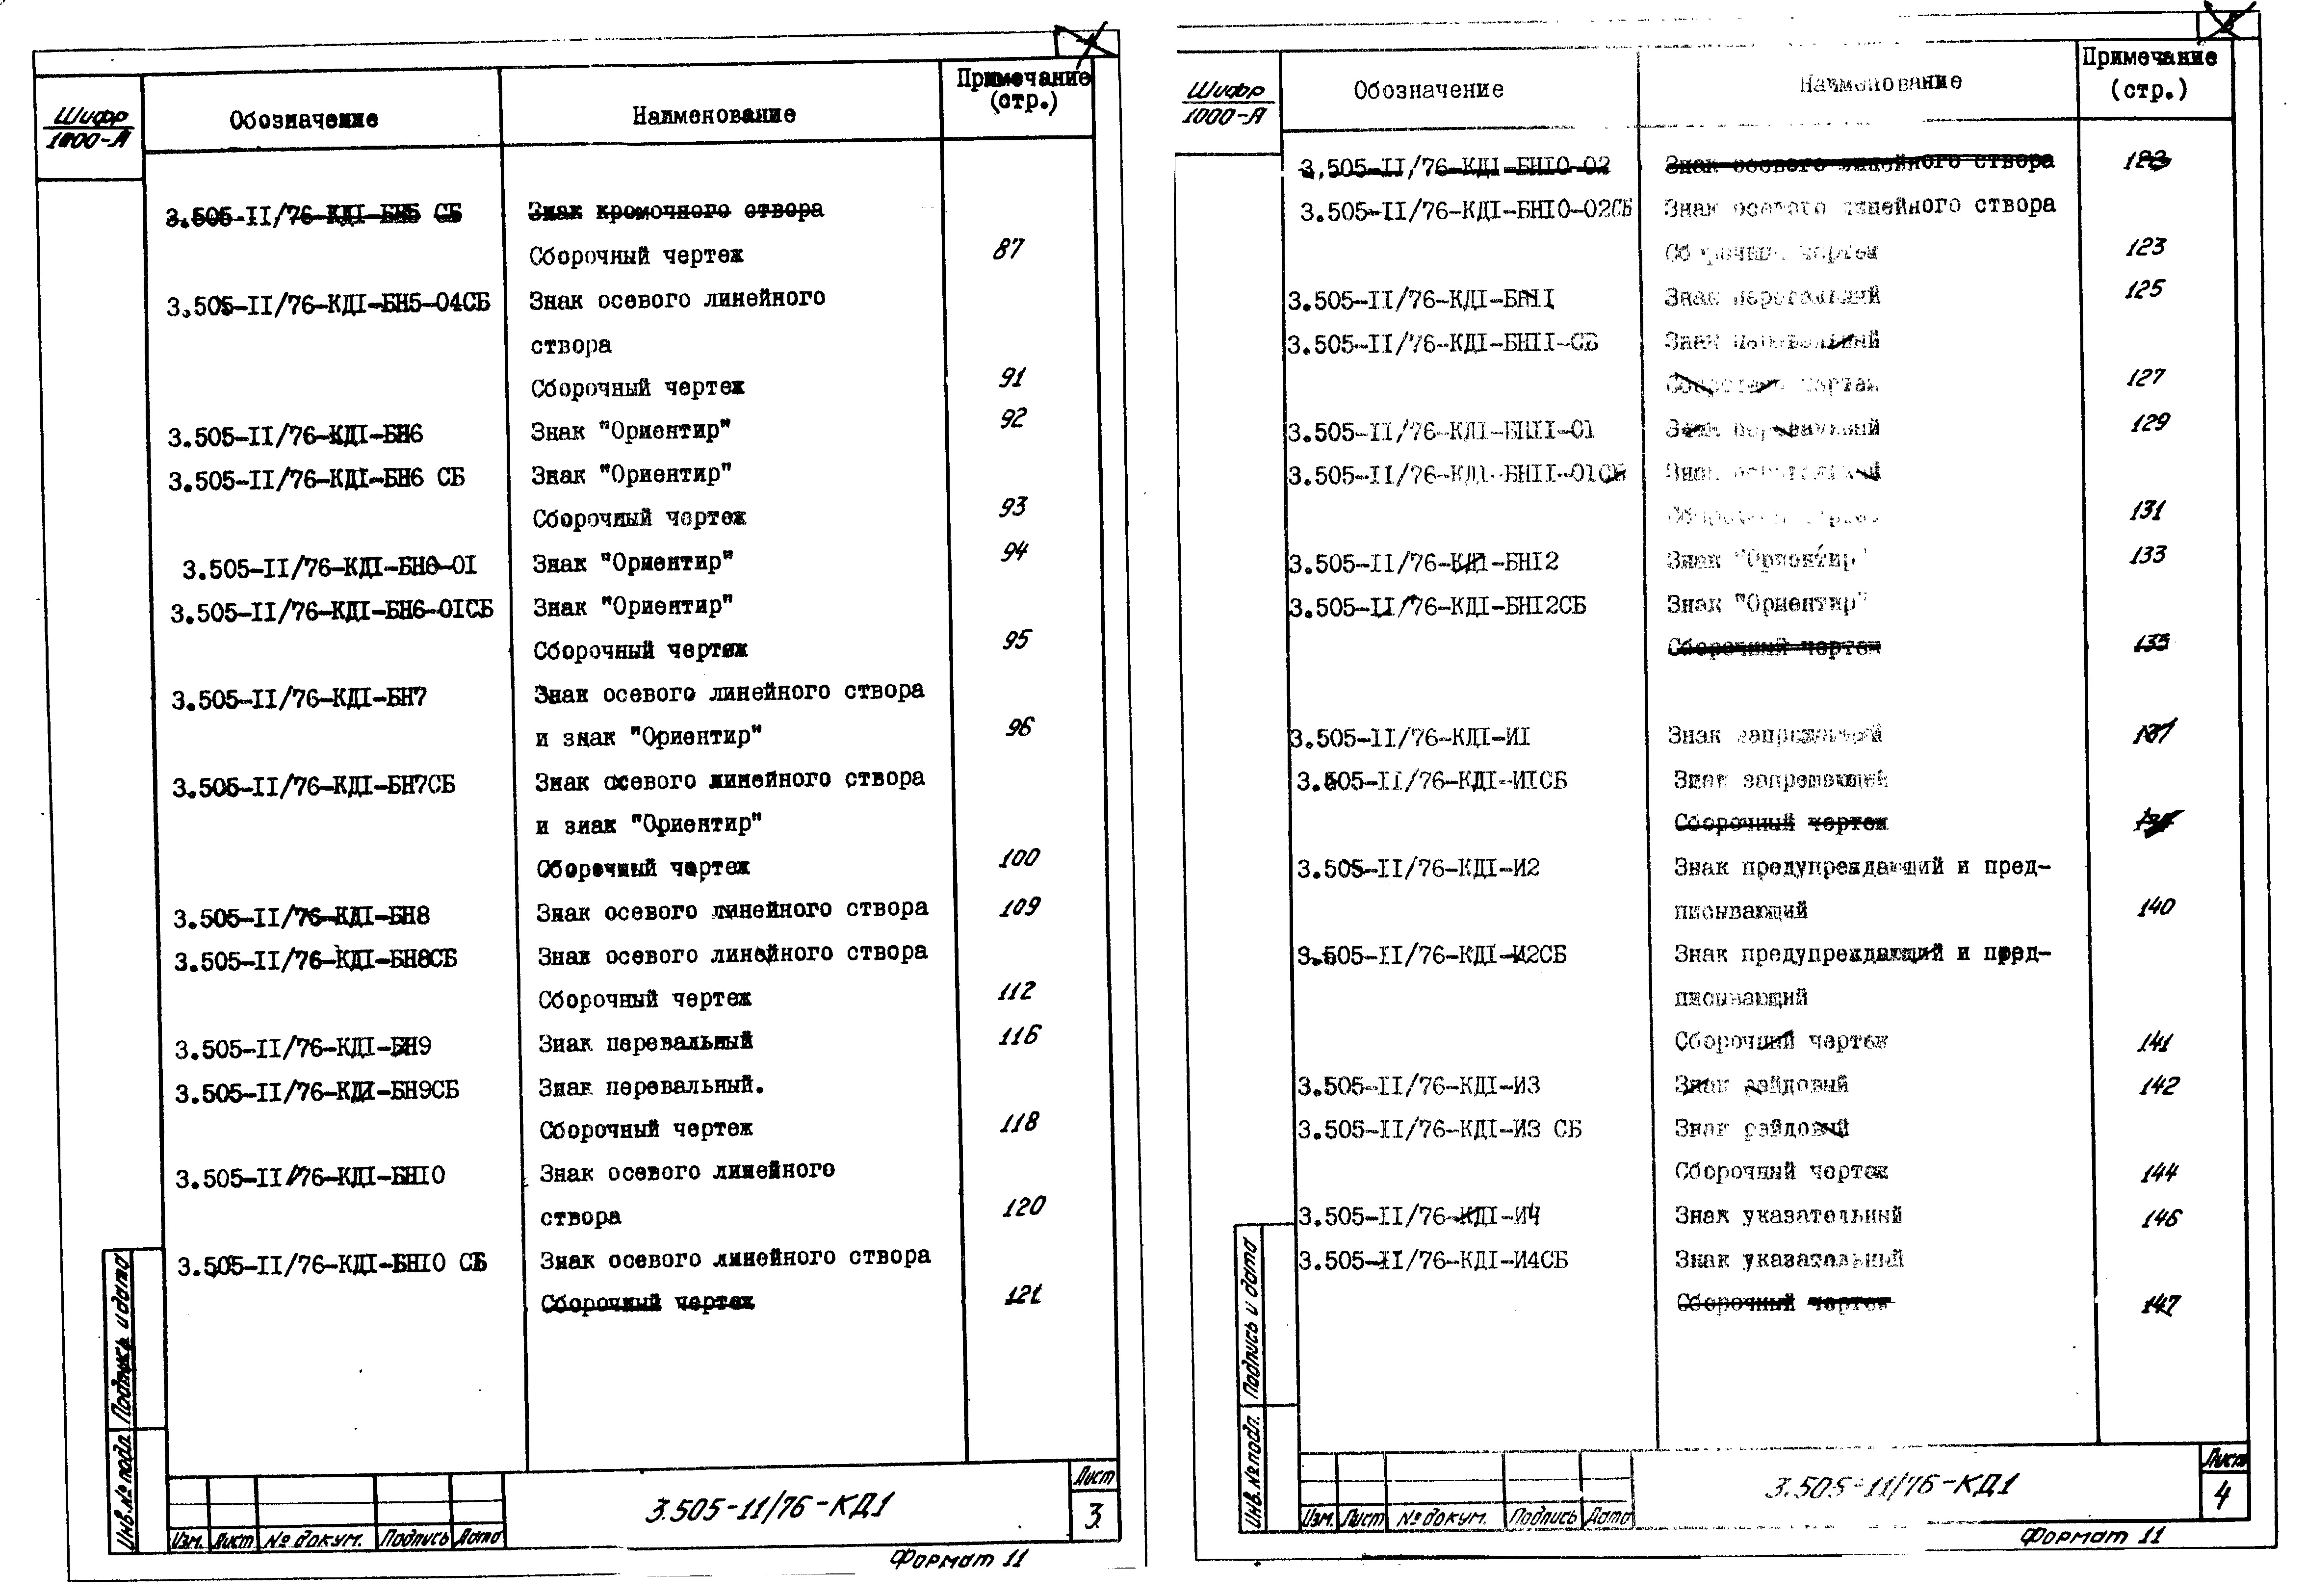 Шифр
1000-А
Обозначение
Наименование
Примечание
(стр.)
3.505-II/76-КДI-БН5 СБ Знак кромочного створа
Сборочный чертеж 87
3.505-II/76-КДI-БН5-04СБ Знак осевого линейного
створа
Сборочный чертеж 91
3.505-II/76-КДI-БН6 Знак "Ориентир" 92
3.505-II/76-КДI-БН6 СБ Знак "Ориентир"
Сборочный чертеж 93
3.505-II/76-КДI-БН6-OI Знак "Ориентир" 94
3.505-II/76-КДI-БН6-OIСБ Знак "Ориентир"
Сборочный чертеж 95
3.505-II/76-КДI-БН7 Знак осевого линейного створа
и знак "Ориентир" 96
3.505-II/76-КДI-БН7СБ Знак осевого линейного створа
и знак "Ориентир"
Сборочный чертеж 100
3.505-II/76-КДI-БН8 Знак осевого линейного створа 109
3.505-II/76-КДI-БН8СБ Знак осевого линейного створа
Сборочный чертеж 112
3.505-II/76-КДI-БН9 Знак перевальный 116
3.505-II/76-КДI-БН9СБ Знак перевальный.
Сборочный чертеж 118
3.505-II/76-КДI-БНIO Знак осевого линейного
створа 120
3.505-II/76-КДI-БНIO СБ Знак осевого линейного створа
Сборочный чертеж 121
Инв.№ подл. Подпись и дата
Изм. Лист № докум. Подпись Дата
3.505-11/76-КД1
Лист
3
Формат 11
Шифр
1000-А
Обозначение
Наименование
Примечание
(стр.)
3.505-II/76-КДI-БНIO-02 Знак осевого линейного створа 123
3.505-II/76-КДI-БНIO-02СБ Знак осевого линейного створа
Сборочный чертеж 123
3.505-II/76-КДI-БНII Знак перевальный 125
3.505-II/76-КДI-БНII-СБ Знак перевальный
Сборочный чертеж 127
3.505-II/76-КДI-БНII-OI Знак перевальный 129
3.505-II/76-КДI-БНII-OIСБ Знак перевальный
Сборочный чертеж 131
3.505-II/76-КДI-БНI2 Знак "Ориентир" 133
3.505-II/76-КДI-БНI2СБ Знак "Ориентир"
Сборочный чертеж 135
3.505-II/76-КДI-ИI Знак запрещающий 137
3.505-II/76-КДI-ИIСБ Знак запрещающий
Сборочный чертеж
3.505-II/76-КДI-И2 Знак предупреждающий и пред-
писывающий 140
3.505-II/76-КДI-И2СБ Знак предупреждающий и пред-
писывающий
Сборочный чертеж 141
3.505-II/76-КДI-И3 Знак рейдовый 142
3.505-II/76-КДI-И3 СБ Знак рейдовый
Сборочный чертеж 144
3.505-II/76-КДI-И4 Знак указательный 146
3.505-II/76-КДI-И4СБ Знак указательный
Сборочный чертеж 147
Инв.№ подл. Подпись и дата
Изм. Лист № докум. Подпись Дата
3.505-11/76-КД1
Лист
4
Формат 11